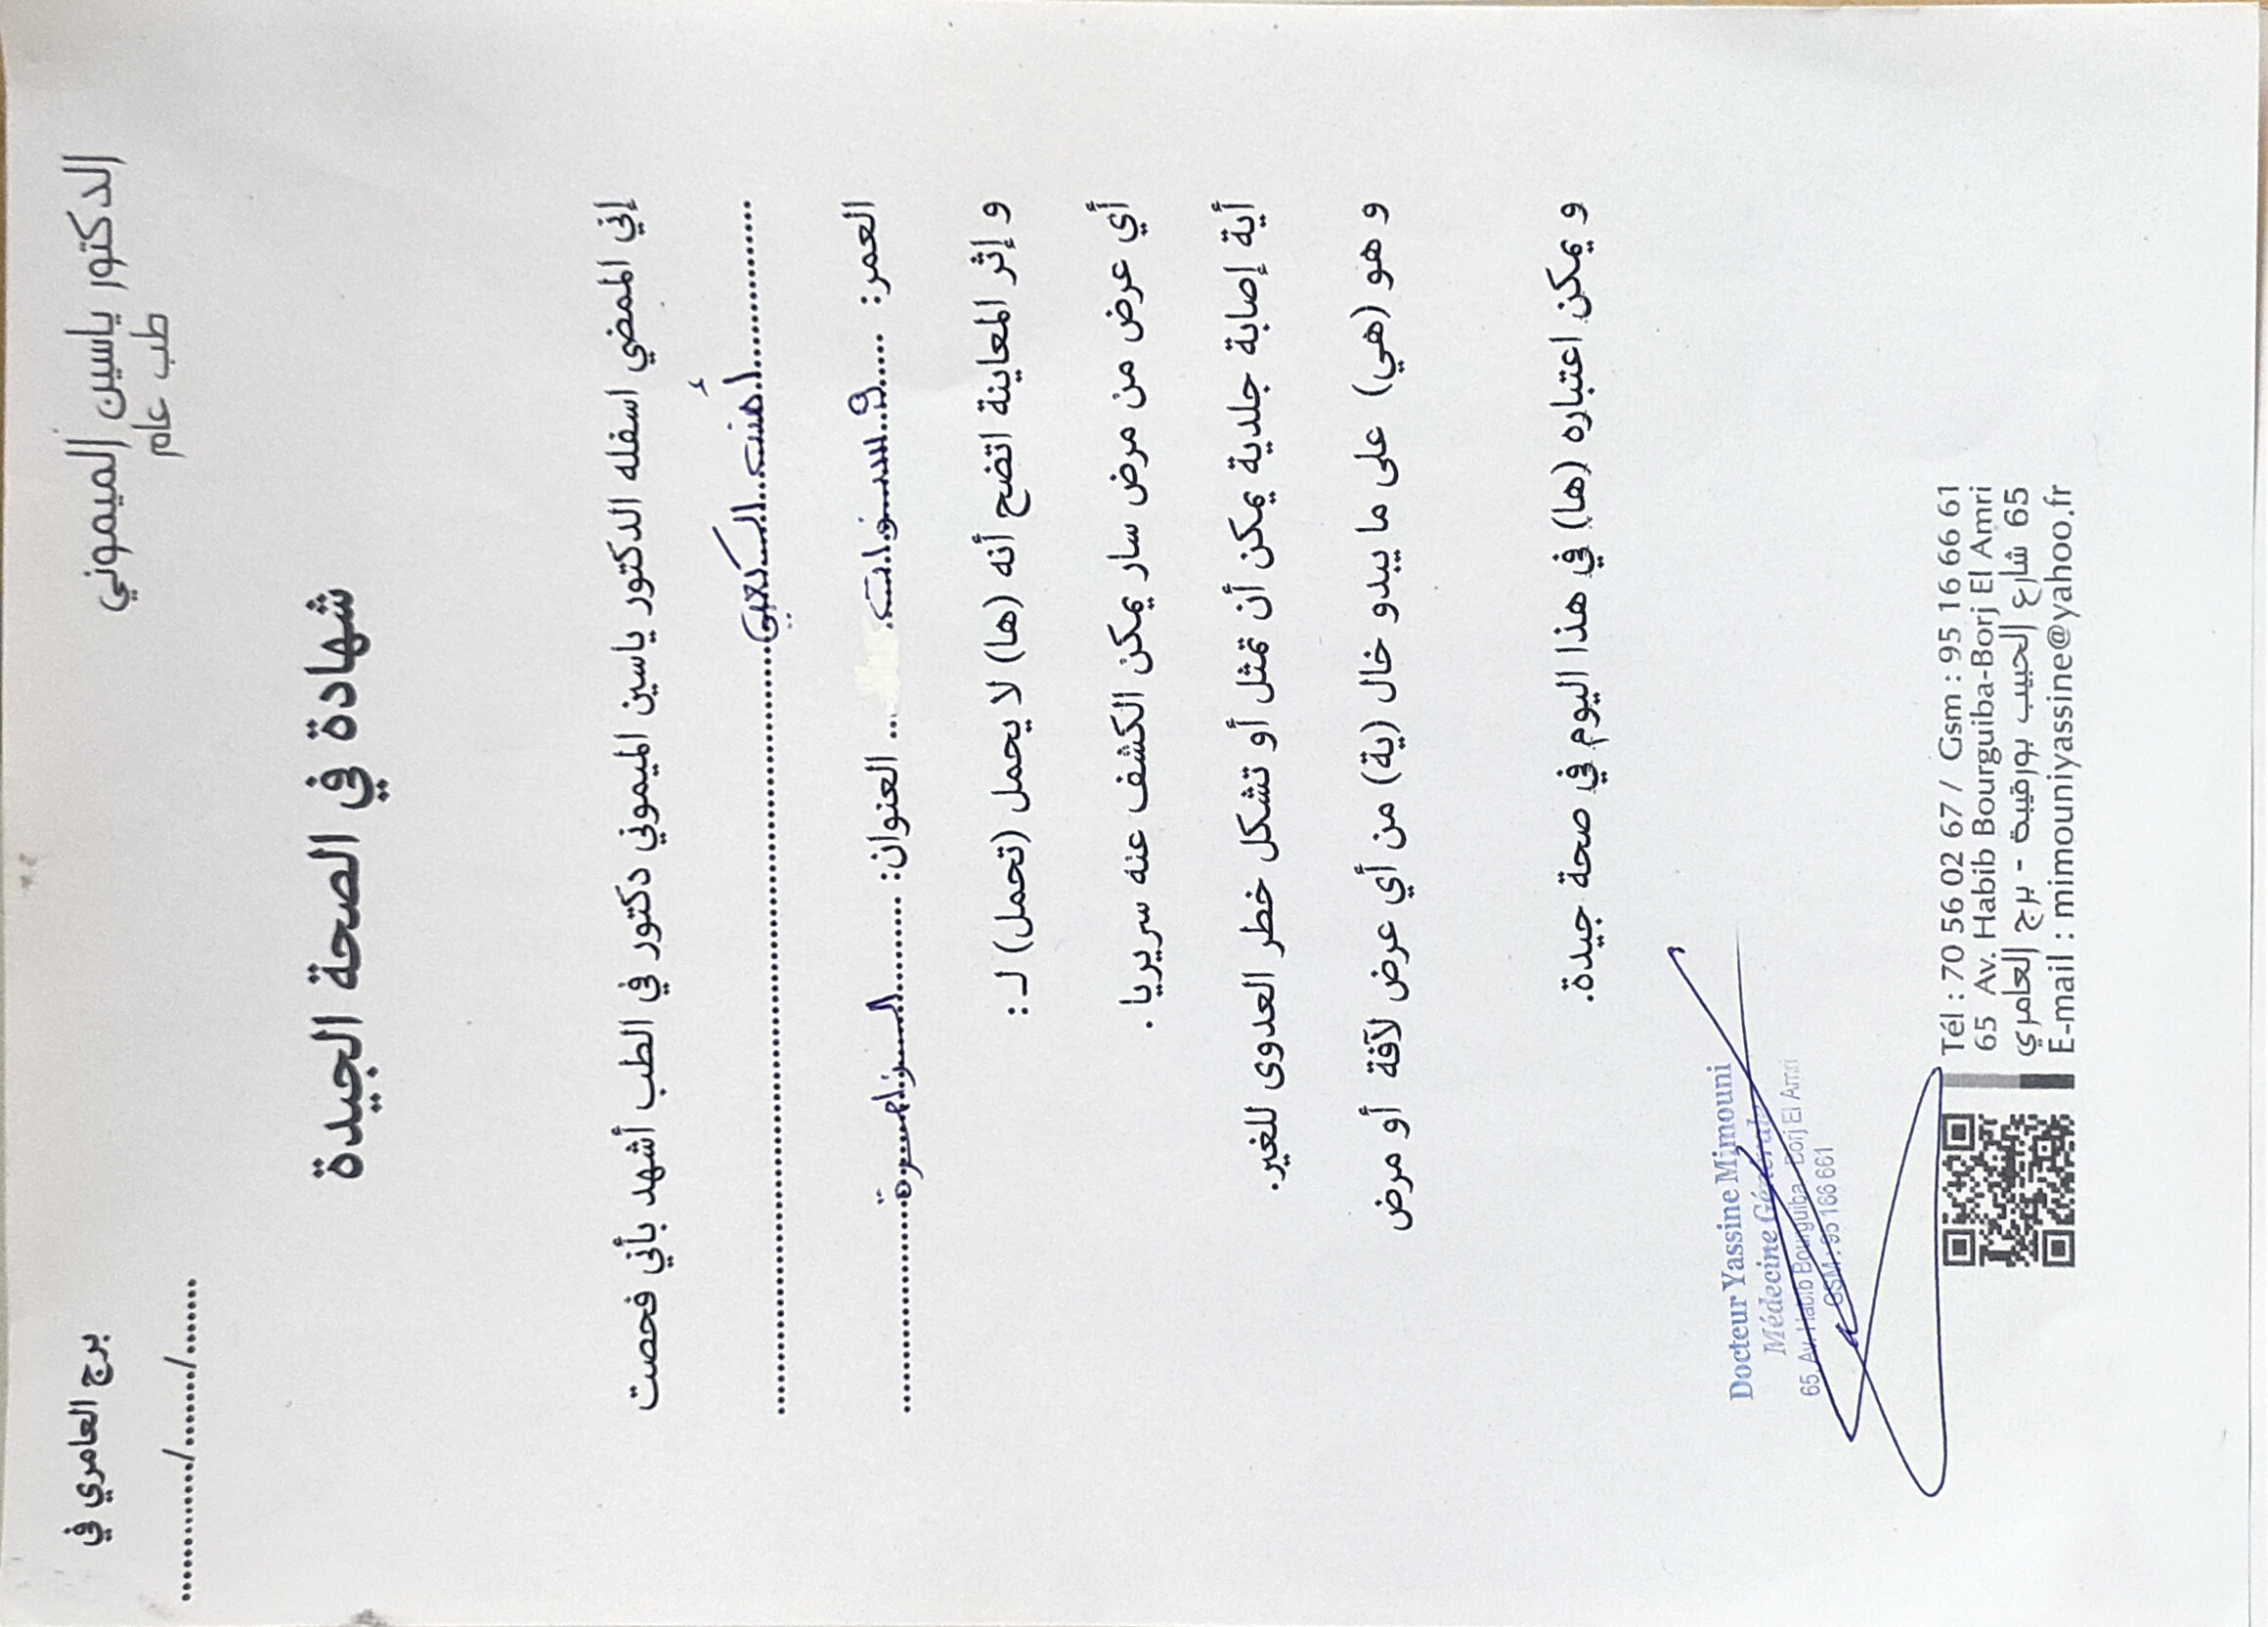 الدكتور ياسين الميموني
طب عام
برج العامري في
............/........./.......
شهادة في الصحة الجيدة
إني الممضي اسفله الدكتور ياسين الميموني دكتور في الطب أشهد بأني فحصت
أمنة الكعبي
العمر: 9 سنوات العنوان: الزاهرة
و إثر المعاينة اتضح أنه (ها) لا يحمل (تحمل) لـ :
أي عرض من مرض سار يمكن الكشف عنه سريريا .
أية إصابة جلدية يمكن أن تمثل أو تشكل خطر العدوى للغير.
و هو (هي) على ما يبدو خال (ية) من أي عرض لآفة أو مرض
و يمكن اعتباره (ها) في هذا اليوم في صحة جيدة.
Docteur Yassine Mimouni
Médecine Générale
65, Av. Habib Bourguiba - Borj El Amri
GSM : 95 166 661
Tél : 70 56 02 67 / Gsm : 95 16 66 61
65 Av. Habib Bourguiba-Borj El Amri
65 شارع الحبيب بورقيبة - برج العامري
E-mail : mimouniyassine@yahoo.fr